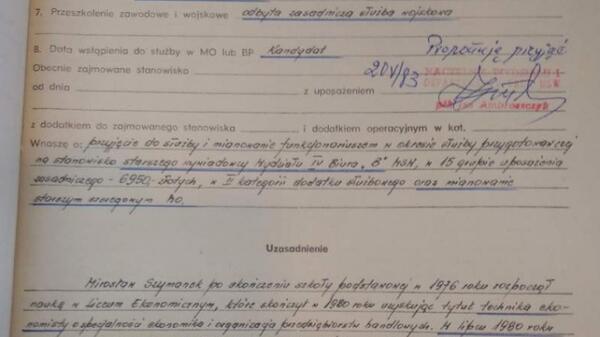 7. Przeszkolenie zawodowe i wojskowe odbyta zasadnicza służba wojskowa
8. Data wstąpienia do służby w MO lub BP Kandydat
Proponuję przyjąć
Obecnie zajmowane stanowisko
20 V/83
NACZELNIK WYDZIAŁU I
od dnia z uposażeniem
płk Ambroszczyk
z dodatkiem do zajmowanego stanowiska i dodatkiem operacyjnym w kat.
Wnoszę o: przyjęcie do służby i mianowanie funkcjonariuszem w okresie służby przygotowawczej
na stanowisko starszego wywiadowcy Wydziału IV Biura "B" MSW, w 15 grupie uposażenia
zasadniczego - 6950,- złotych, w II kategorii dodatku służbowego oraz mianowanie
starszym szeregowym MO.
Uzasadnienie
Mirosław Szymanek po skończeniu szkoły podstawowej w 1976 roku rozpoczął
naukę w Liceum Ekonomicznym, które skończył w 1980 roku uzyskując tytuł technika eko-
nomisty o specjalności ekonomika i organizacja przedsiębiorstw handlowych. W lipcu 1980 roku